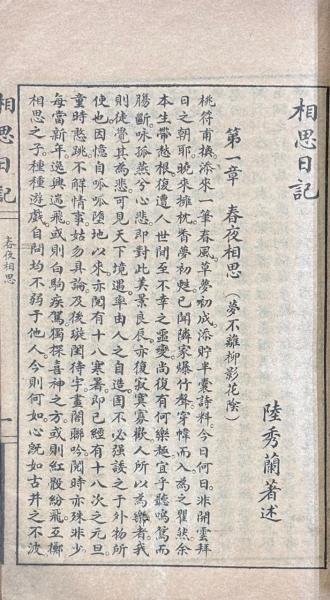 相思日記
陸秀蘭著述
第一章　春夜相思（夢不離柳影花陰）
桃符甫換。添來一筆春風。草夢初成。添貯半囊詩料。今日何日。非開雲拜
日之朝耶。曉來擁枕香夢初甦。已聞隣家爆竹聲。穿幃而入。為之瞿然。余
本生帶愁根。復遭人世間至不幸之靈變。尚復有何樂趣。宜乎聽鳴鶯而
腸斷。咏孤燕兮心悲。即對此美景良辰。亦復寂寞寡歡。人所以為樂者。我
則徒覺其為悲。可見天下境遇。率由人之自造。固不必強諉之于外物所
使也。因憶自呱呱墮地以來。亦閱有十八寒暑。即已經有十八次之元旦。
童時憨跳。不解情事。姑勿具論。及後璇閨待字。畫閣聯吟。閱時亦殊非少。
每當新年。逸興遄飛。或則白駒疾駕。獨探喜神之方。或則紅骰紛飛。互擲
相思之子。種種游戲。自問均不弱于他人。今則何如。心既如古井之不波。
相思日記
春夜相思
一